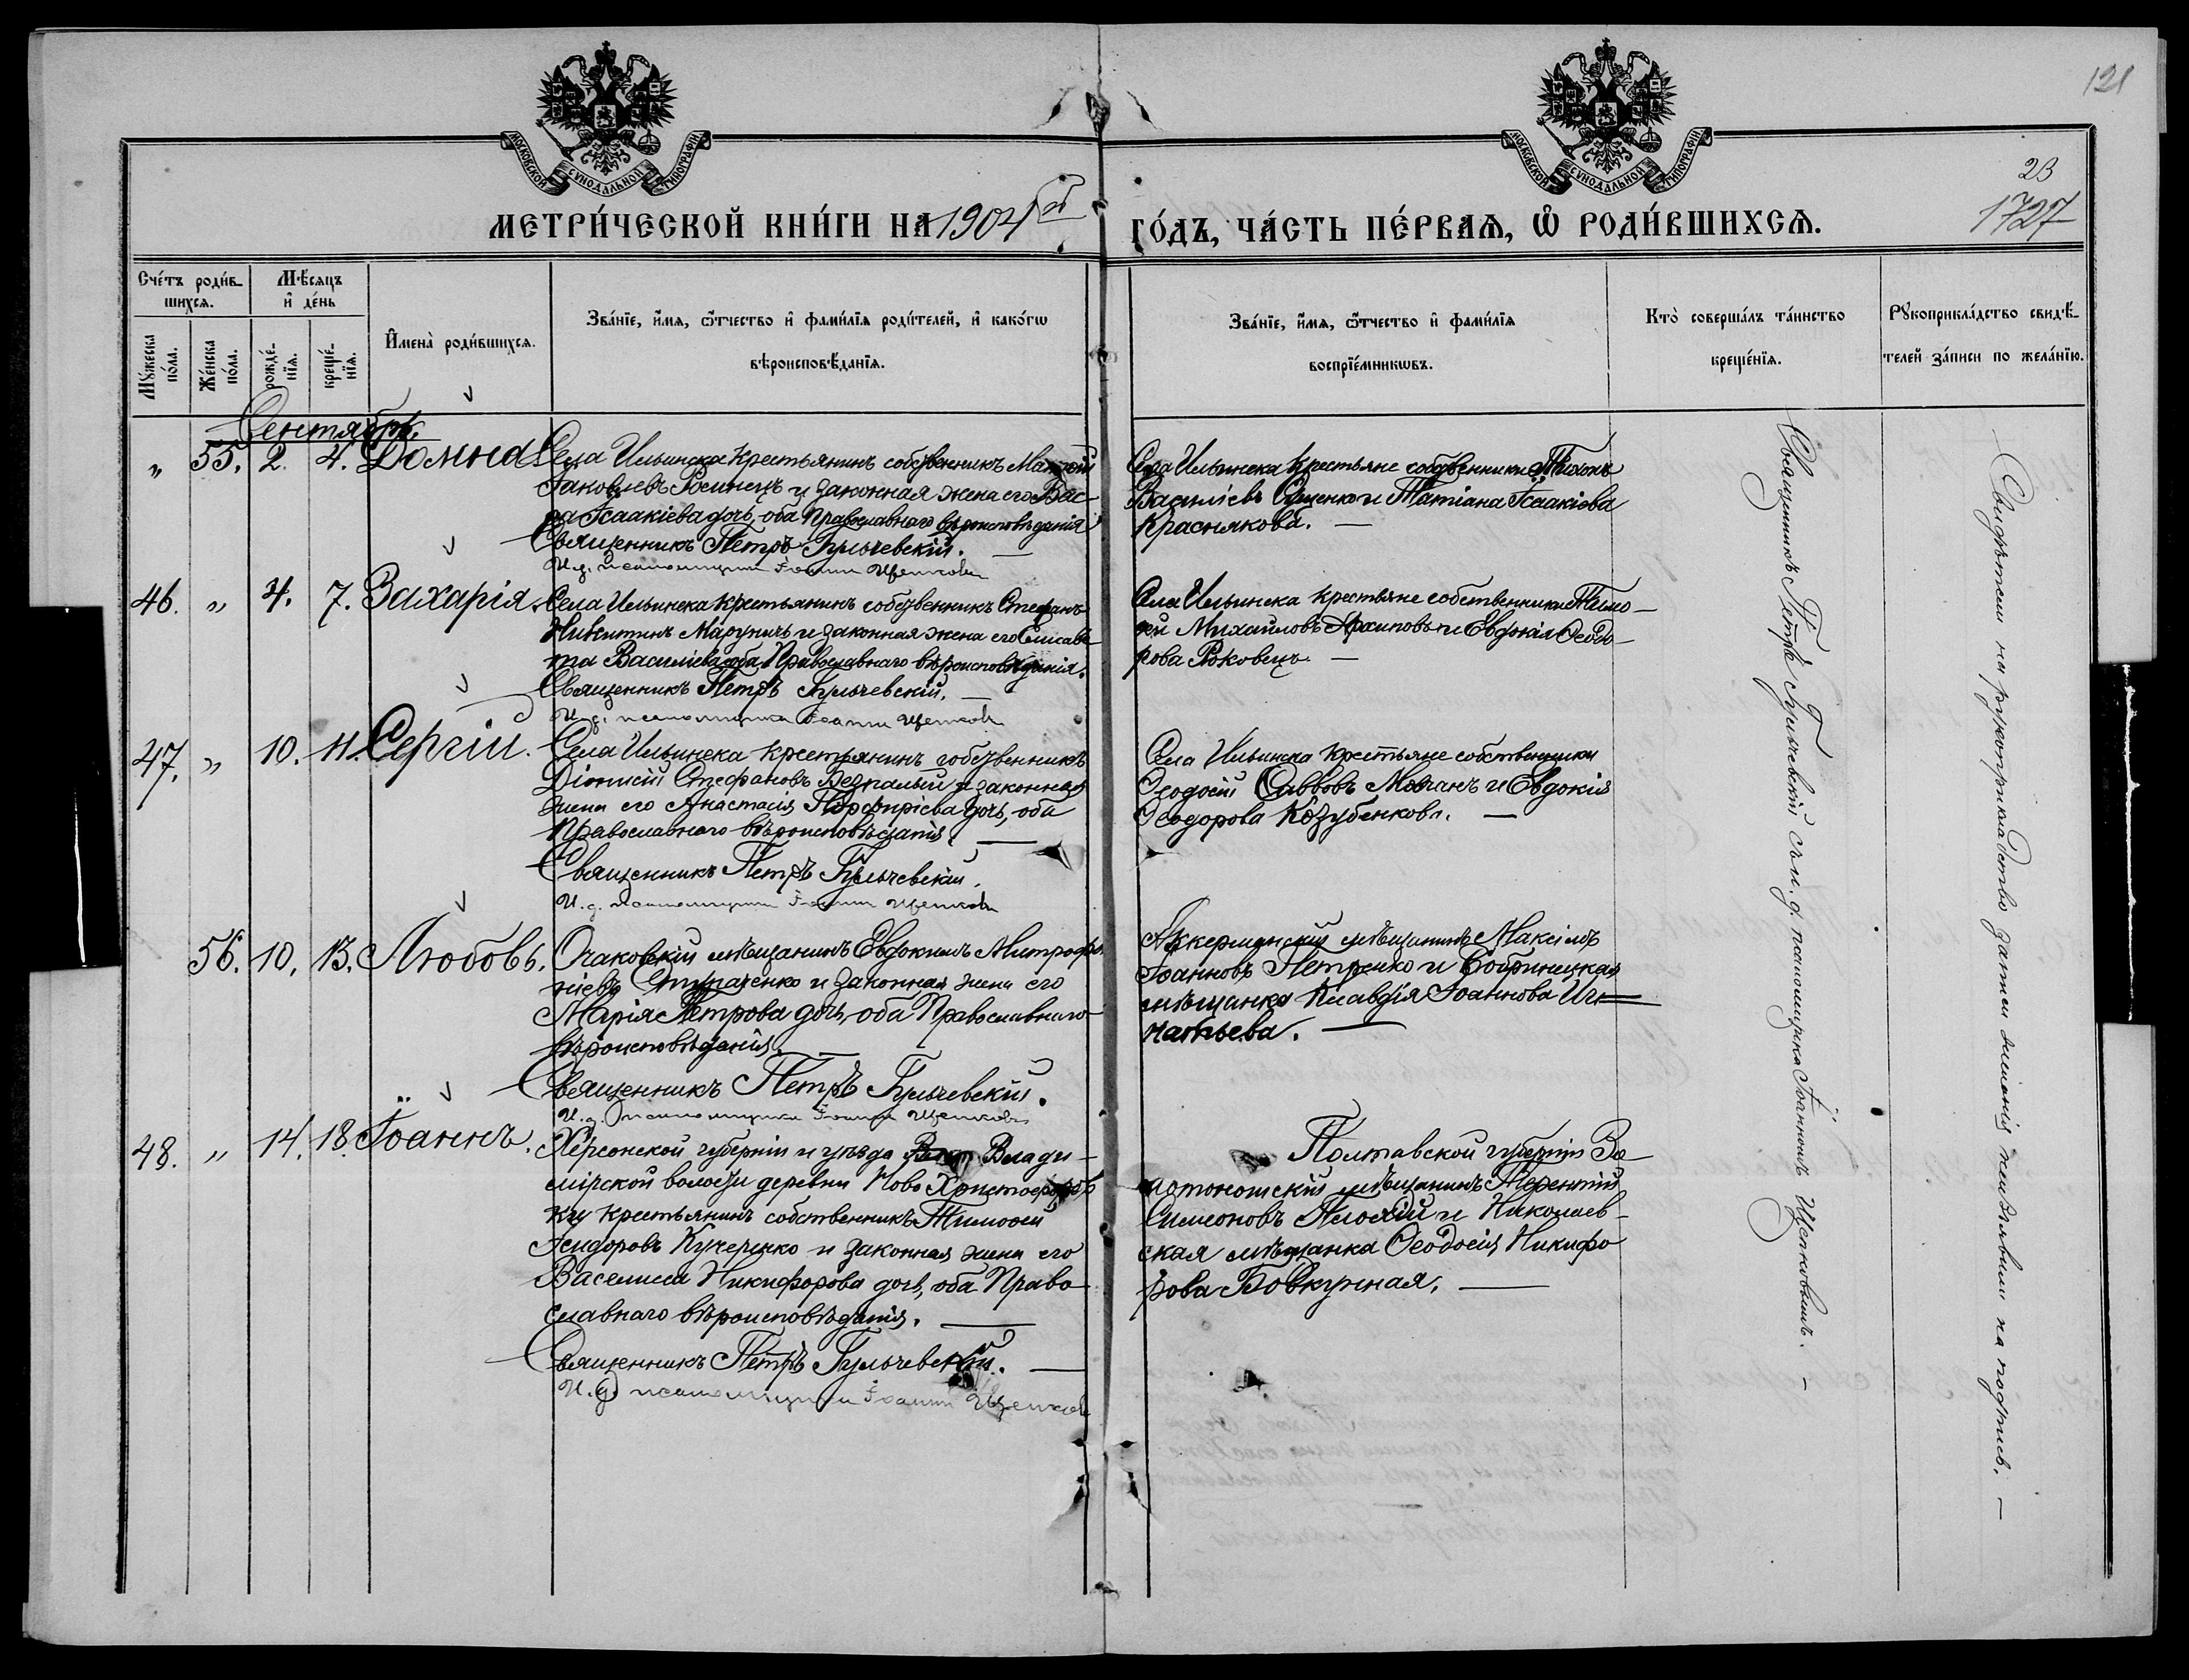 121
23
1727
МОСКОВСКОЙ СУНОДАЛЬНОЙ ТИПОГРАФІИ
МОСКОВСКОЙ СУНОДАЛЬНОЙ ТИПОГРАФІИ
МЕТРИ́ЧЕСКОЙ КНИ́ГИ НА 1904й
ГО́ДЪ, ЧА́СТЬ ПЕ́РВАѦ, Ѡ҆ РОДИ́ВШИХСѦ.
Сче́тъ роди́вшихсѧ.
Мꙋ́жеска по́ла.
Же́нска по́ла.
Мѣ́сѧцъ и҆ де́нь
рожде́нїѧ.
креще́нїѧ.
И҆мена̀ роди́вшихсѧ.
Зва́нїе, и҆́мѧ, ѻ҆́тчество и҆ фами́лїѧ роди́телей, и҆ како́гѡ
вѣроисповѣ́данїѧ.
Зва́нїе, и҆́мѧ, ѻ҆́тчество и҆ фами́лїѧ
воспрїе́мникѡвъ.
Кто̀ соверша́лъ та́инство
креще́нїѧ.
Рꙋкоприкла́дство свидѣ́-
телей за́писи по жела́нїю.
Сентябрь.
„ 55. 2. 4. Домна
Села Ильинска крестьянинъ собственникъ
Іаковлевъ и законная жена его Вас-
са Ісаакіева дочь, оба Православнаго вѣроисповѣданія
Священникъ Петръ Гульчевскій. —
И. д. псаломщика Іоаннъ Щепковъ
Села Ильинска крестьяне собственники Тихонъ
Василіевъ и Татіана Ісаакіева
Краснякова. —
46. „ 4. 7. Захарія.
Села Ильинска крестьянинъ собственникъ Стефанъ
Никитинъ Маруничъ и законная жена его Елисаве-
та Василіева, оба Православнаго вѣроисповѣданія.
Священникъ Петръ Гульчевскій. —
И. д. псаломщика Іоаннъ Щепковъ
Села Ильинска крестьяне собственники Тимо-
ѳей Михайловъ Архиповъ и Евдокія Ѳеодо-
рова Роковецъ. —
47. „ 10. 11. Сергій.
Села Ильинска крестьянинъ собственникъ
Діонисій Стефановъ Безпалый и законная
жена его Анастасія Порфиріева дочь, оба
Православнаго вѣроисповѣданія. —
Священникъ Петръ Гульчевскій.
И. д. псаломщика Іоаннъ Щепковъ
Села Ильинска крестьяне собственники
Ѳеодосій Саввовъ Молчанъ и Евдокія
Ѳеодорова Козубенкова. —
56. 10. 13. Любовь.
Очаковскій мѣщанинъ Евдокимъ Митрофа-
ніевъ Ступаченко и законная жена его
Марія Петрова дочь, оба Православнаго
вѣроисповѣданія. —
Священникъ Петръ Гульчевскій.
И. д. псаломщика Іоаннъ Щепковъ
Аккерманскій мѣщанинъ Максімъ
Іоанновъ Петренко и Бобринецкая
мѣщанка Клавдія Іоаннова Иг-
натьева. —
48. „ 14. 18. Іоаннъ.
Херсонской губерніи и уѣзда Влади-
мірской волости деревни Ново Христофоров
ки крестьянинъ собственникъ Тимоѳей
Ісидоровъ Кучеренко и законная жена его
Василиса Никифорова дочь, оба Право-
славнаго вѣроисповѣданія. —
Священникъ Петръ Гульчевскій. —
И. д. псаломщика Іоаннъ Щепковъ
Полтавской губерніи Зо-
лотоношскій мѣщанинъ Терентій
Симеоновъ Плохій и Николаев-
ская мѣщанка Ѳеодосія Никифо
рова Бовкунная. —
Священникъ Петръ Гульчевскій съ и. д. псаломщика Іоанномъ Щепковымъ. —
Свидѣтели на рукоприкладство записи желанія не изъявили на подпись. —